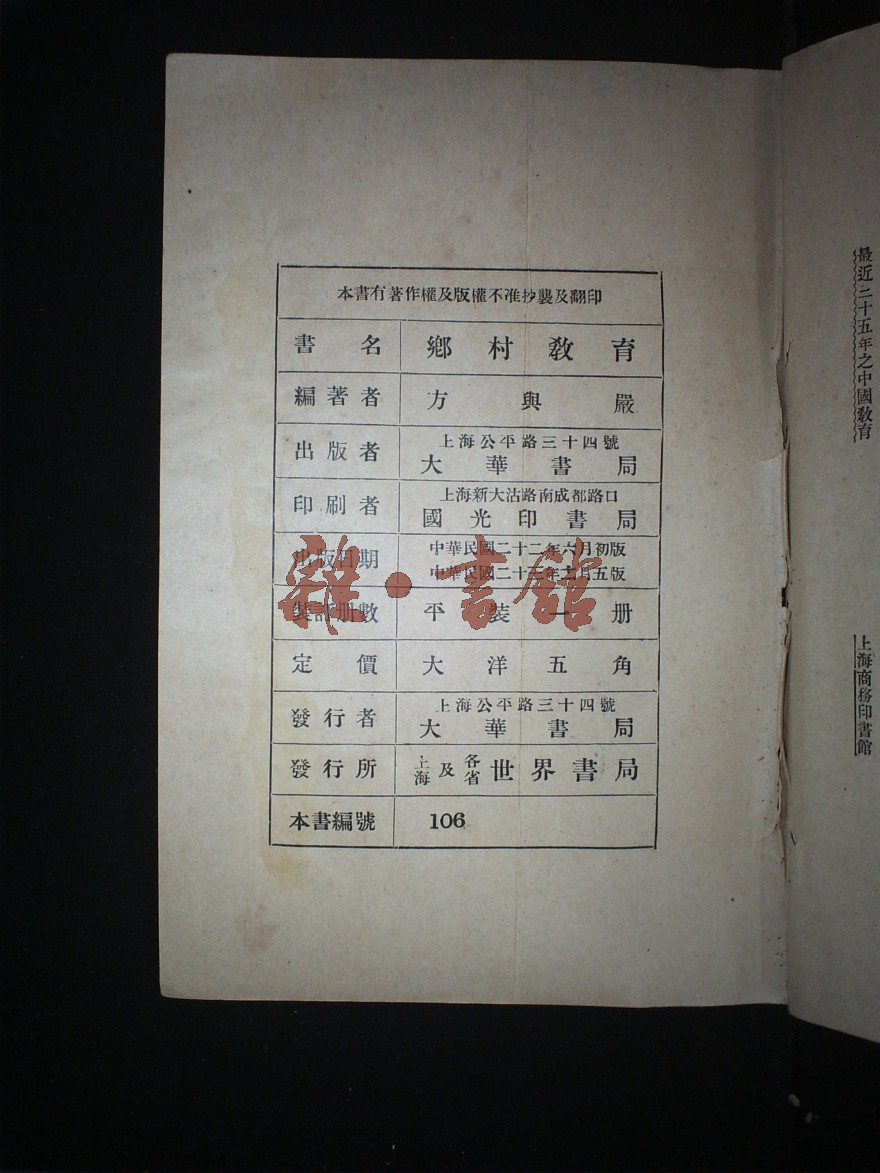 本書有著作權及版權不准抄襲及翻印
書名 鄉村教育
編著者 方與嚴
出版者 上海公平路三十四號
大華書局
印刷者 上海新大沽路南成都路口
國光印書局
出版日期 中華民國二十二年六月初版
中華民國二十三年 月五版
裝訂册數 平裝一册
定價 大洋五角
發行者 上海公平路三十四號
大華書局
發行所 上海及各省世界書局
本書編號 106
雜·書館
最近三十五年之中國教育
上海商務印書館